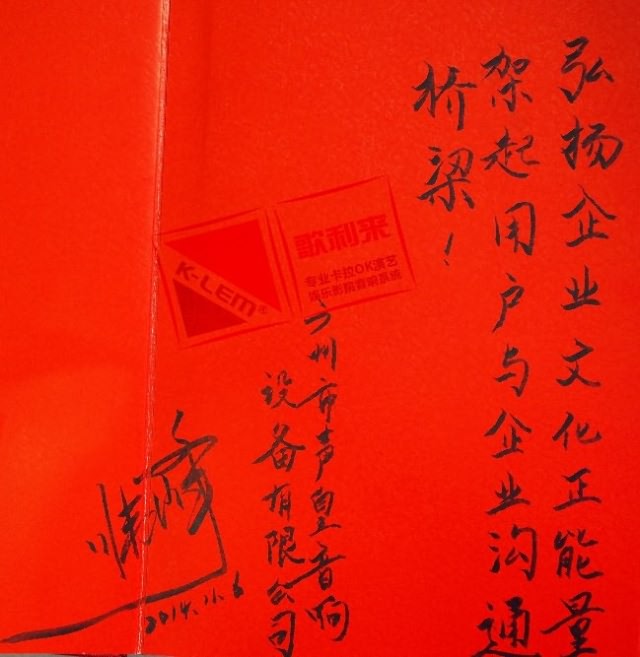 弘扬企业文化正能量
架起用户与企业沟通
桥梁！
K-LEM®
歌利来
专业卡拉OK演艺
娱乐影院音响系统
广州市声皇音响
设备有限公司
2014.11.6